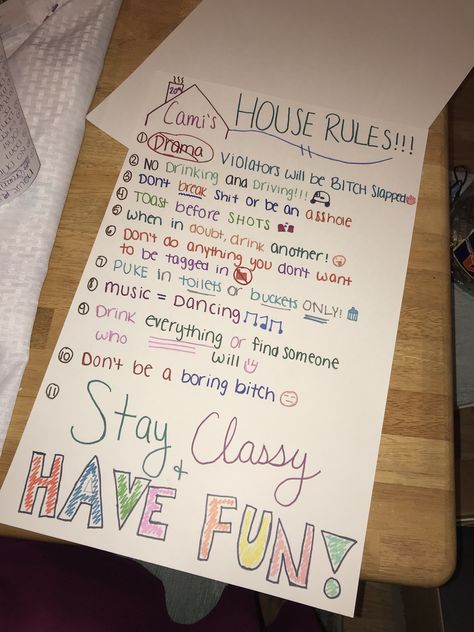 Cami's HOUSE RULES!!!
① Drama Violators will be BITCH Slapped
② NO Drinking and Driving!!!
③ Don't break shit or be an asshole
④ TOAST before SHOTS
⑤ when in doubt, drink another!
⑥ Don't do anything you don't want
to be tagged in
⑦ PUKE in toilets or buckets ONLY!
⑧ music = Dancing
⑨ Drink everything or find someone
who will
⑩ Don't be a boring bitch
⑪
Stay Classy
+
HAVE FUN!